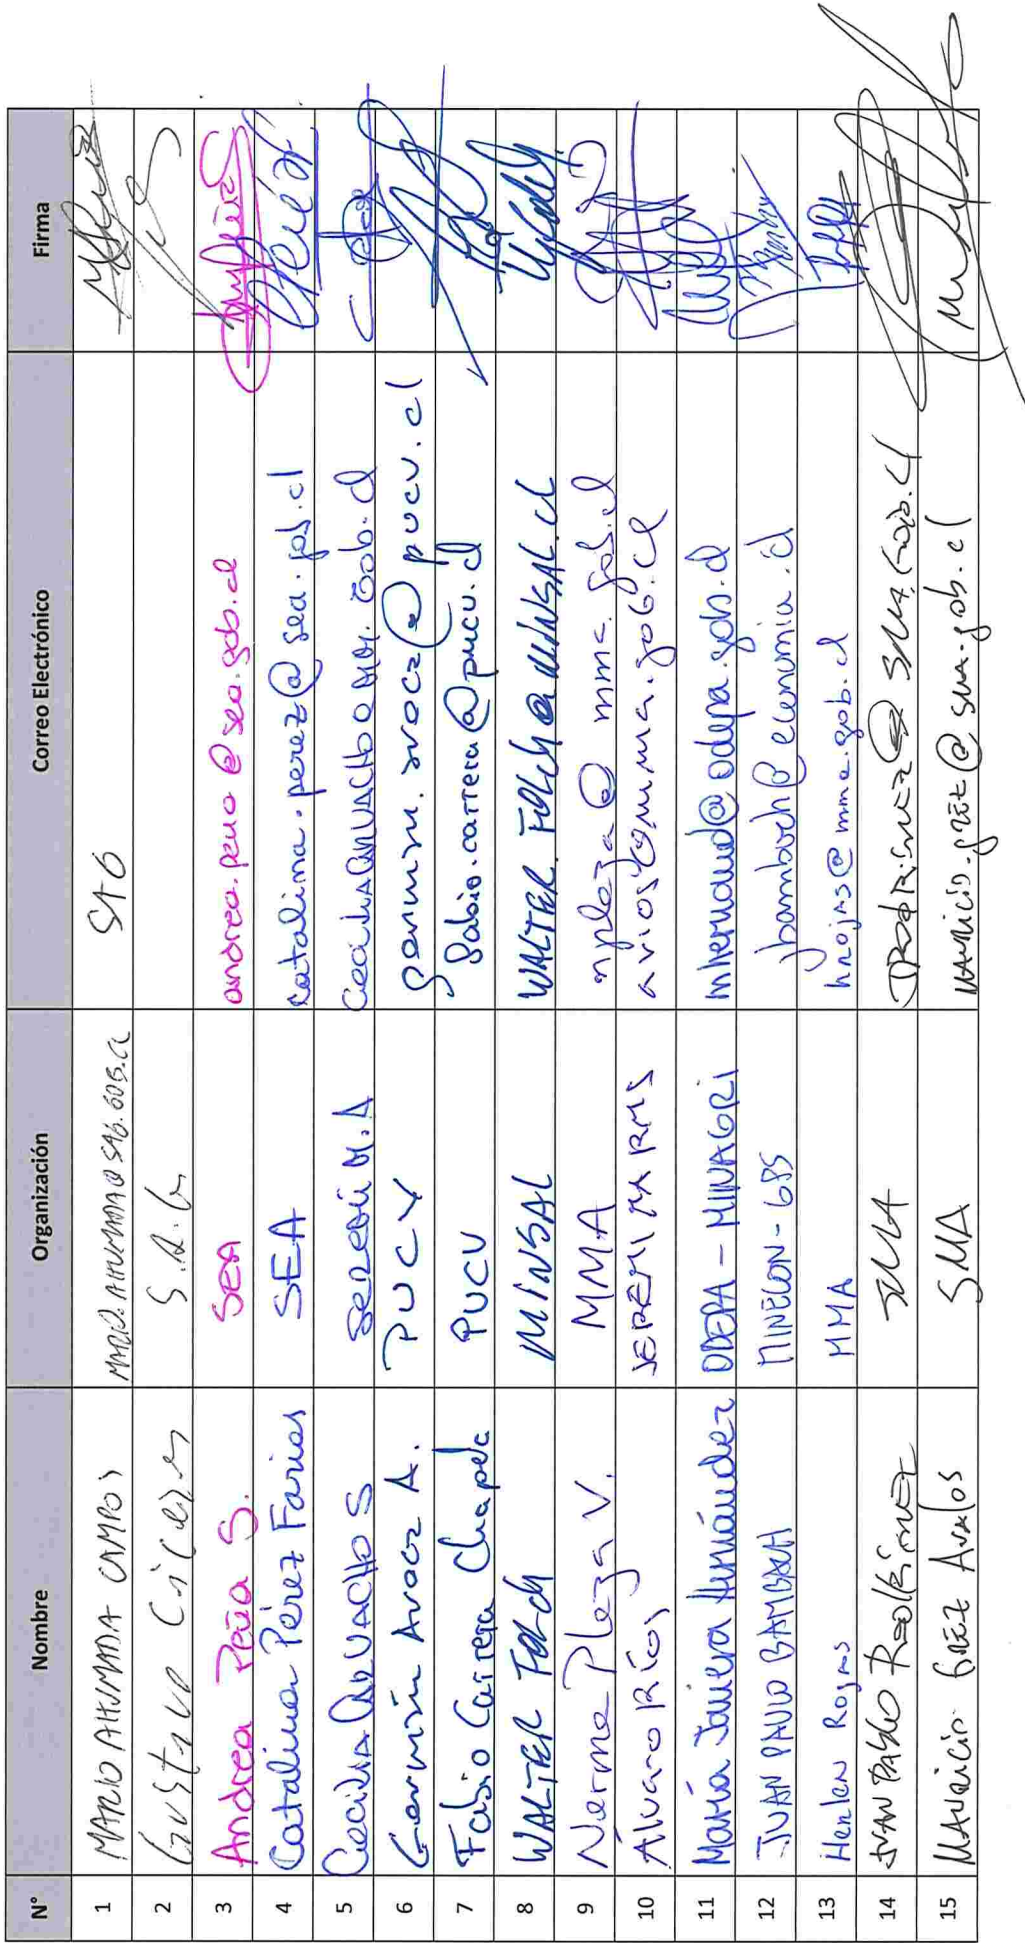 N° Nombre Organización Correo Electrónico Firma
1 MARIO AHUMADA CAMPOS MARIO.AHUMADA@SAG.GOB.CL SAG
2 Gustavo S.A.G
3 Andrea Peña S. SEA andrea.pena@sea.gob.cl
4 Catalina Pérez Farias SEA catalina.perez@sea.gob.cl
5 Cecilia S SEREMI M.A
6 Germán Aroca A. PUCV german.aroca@pucv.cl
7 Fabio Carrera Chapelc PUCV fabio.carrera@pucv.cl
8 WALTER FOLCH MINSAL WALTER.FOLCH@MINSAL.CL
9 Nerma Plaza V. MMA nplaza@mma.gob.cl
10 Álvaro Ríos SEREMI MA RMS arios@mma.gob.cl
11 María Javiera Hernández ODEPA - MINAGRI mhernandez@odepa.gob.cl
12 JUAN PABLO BAMBACH MINECON - GBS
13 Henlen Rojas MMA hrojas@mma.gob.cl
14 JUAN PABLO RODRÍGUEZ SMA
15 MAURICIO GREZ AVALOS SMA MAURICIO.grez@sma.gob.cl